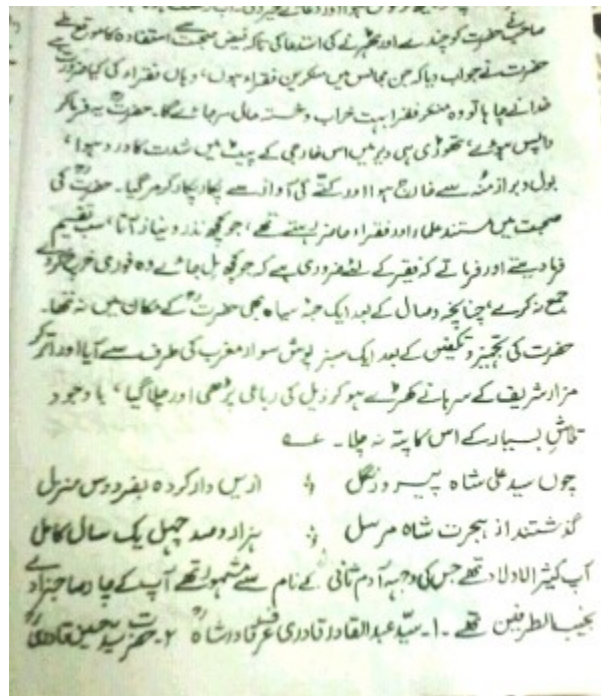 صاحب نے حضرت کو چندے اور ٹھہرنے کی استدعا کی تاکہ فیض صحبت سے استفادہ کا موقع ملے
حضرت نے جواب دیا کہ جن مجالس میں منکرین فقراء ہوں، وہاں فقراء کی کیا ضرورت ہے
خدا نے چاہا تو وہ منکر فقرا بہت خراب و خستہ حال مر جائے گا۔ حضرتؒ یہ فرما کر
واپس ہوئے، تھوڑی ہی دیر میں اس خارجی کے پیٹ میں شدت کا درد ہوا،
بول و براز منہ سے خارج ہوا اور کتے کی آواز سے پکار پکار کر مر گیا۔ حضرتؒ کی
صحبت میں مستند علماء اور فقراء حاضر رہتے تھے، جو کچھ نذر و نیاز آتا، سب تقسیم
فرما دیتے اور فرماتے کہ فقیر کے لئے ضروری ہے کہ جو کچھ مل جائے وہ فوری خرچ کرے
جمع نہ کرے، چنانچہ وصال کے بعد ایک حبہ سیاہ بھی حضرتؒ کے مکان میں نہ تھا۔
حضرت کی تجہیز و تکفین کے بعد ایک سبز پوش سوار مغرب کی طرف سے آیا اور اتر کر
مزار شریف کے سرہانے کھڑے ہو کر ذیل کی رباعی پڑھی اور چلا گیا، باوجود
تلاش بسیار کے اس کا پتہ نہ چلا۔
چوں سید علی شاہ پیر و ازیں دار کردہ بفردوس منزل
گذشتند از ہجرت شاہ مرسل ہزار و صد چہل یک سال کامل
آپ کثیر الاولاد تھے جس کی وجہہ آدم ثانی کے نام سے مشہور تھے آپ کے چار صاحبزادے
نجیب الطرفین تھے۔ ۱۔ سید عبدالقادر قادری عرف قادر شاہؒ ۲۔ حضرت سید حسین قادریؒ